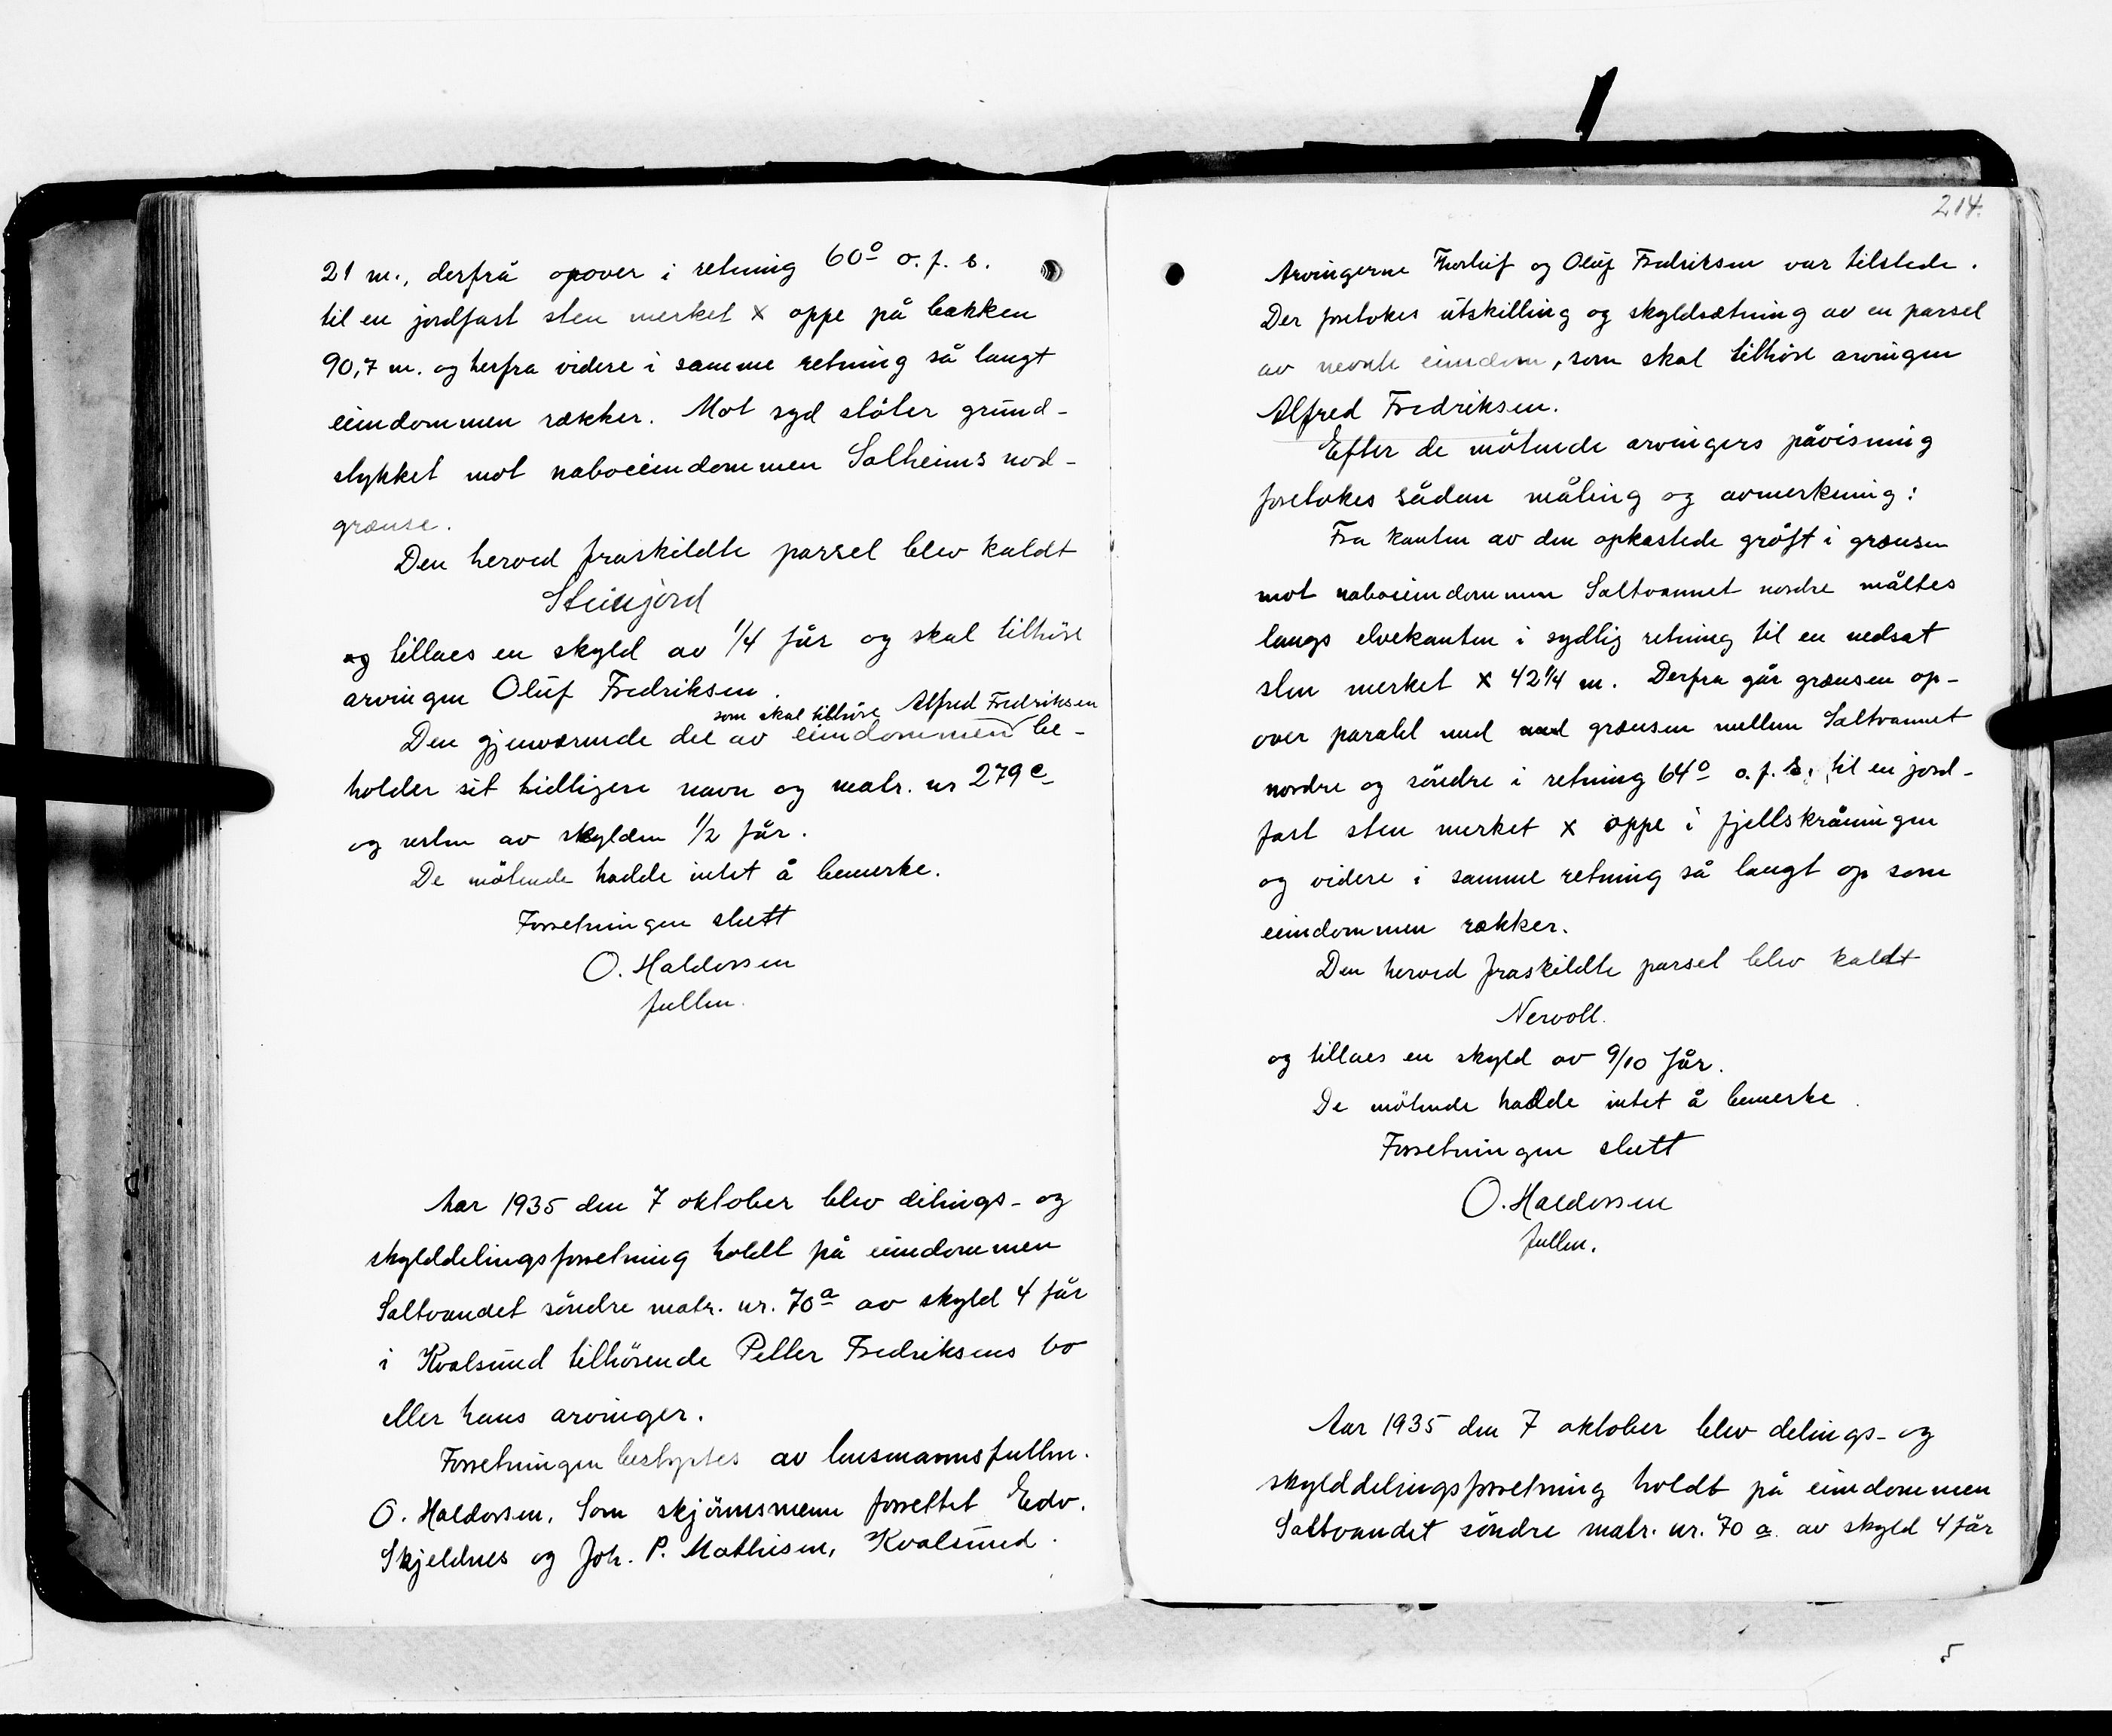 21 m., derfrå opover i retning 60° o. f. s.
til en jordfast sten merket x oppe på bakken
90,7 m. og herfra videre i samme retning så langt
eiendommen rækker. Mot syd støter grund-
stykket mot naboeiendommen Solheims nord-
grænse.
Den herved fraskildte parsel blev kaldt
Steinjord
og tillaes en skyld av 1/4 får og skal tilhöre
arvingen Oluf Fredriksen.
som skal tilhöre Alfred Fredriksen
Den gjenværende del av eiendommen be-
holder sit tidligere navn og matr. nr 279 c
og resten av skylden 1/2 får.
De mötende hadde intet å bemerke.
Forretningen slutt
O. Haldorsen
fullm.
Aar 1935 den 7 oktober blev delings- og
skylddelingsforretning holdt på eiendommen
Saltvandet söndre matr. nr. 70 a av skyld 4 får
i Kvalsund tilhörende Petter Fredriksens bo
eller hans arvinger.
Forretningen bestyrtes av lensmannsfullm.
O. Haldorsen. Som skjönnsmenn forrettet Edv.
Skjeldnes og Joh. P. Mathisen, Kvalsund.
214.
Arvingerne Thorleif og Oluf Fredriksen var tilstede.
Der foretokes utskilling og skyldsætning av en parsel
av nevnte eiendom, som skal tilhöre arvingen
Alfred Fredriksen.
Efter de mötende arvingers påvisning
foretokes sådan måling og avmerkning:
Fra kanten av den opkastede gröft i grænsen
mot naboeiendommen Saltvannet nordre måltes
langs elvekanten i sydlig retning til en nedsat
sten merket x 42 1/4 m. Derfra går grænsen op-
over paralel med grænsen mellem Saltvannet
nordre og söndre i retning 64° o. f. s. til en jord-
fast sten merket x oppe i fjellskråningen
og videre i samme retning så langt op som
eiendommen rækker.
Den herved fraskildte parsel blev kaldt
Nervoll.
og tillaes en skyld av 9/10 får.
De mötende hadde intet å bemerke.
Forretningen slutt
O. Haldorsen
fullm.
Aar 1935 den 7 oktober blev delings- og
skylddelingsforretning holdt på eiendommen
Saltvandet söndre matr. nr. 70 a. av skyld 4 får
5